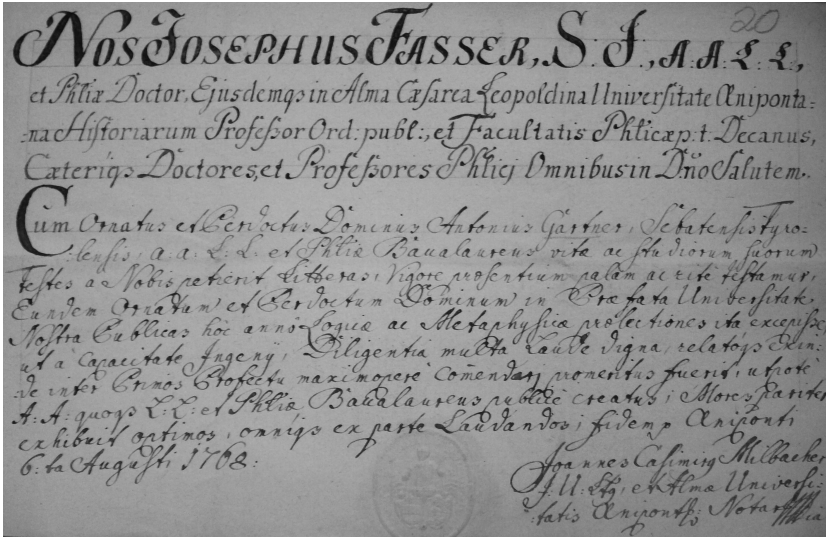 20
NOS JOSEPHUS FASSER, S: J:, A: A: L: L:,
et Phliæ Doctor, Ejusdemqs in Alma Cæsarea Leopoldina Universitate Œniponta-
:na Historiarum Profeſsor Ord: publ:, et Facultatis Phlicæ p: t: Decanus,
Cæteriqs Doctores, et Profeſsores Phlicj Omnibus in Dño Salutem.
Cum Ornatus et Perdoctus Dominus Antonius Gärtner, Sebatensis Tyro-
:lensis, a: a: L: L: et Phliæ Baccalaureus vitæ ac studiorum suorum
Testes a Nobis petierit Litteras, Vigore præsentium palam ac rite testamur,
Eundem Ornatum et Perdoctum Dominum in Præfata Universitate
Nostra Publicas hoc anno Logicæ ac Metaphysicæ prælectiones ita excepisse,
ut à Capacitate Ingenij, Diligentia multa Laude digna, relatoqs exin-
de inter Primos Profectu maximopere com̄endarj promeritus fuerit, utpote
A: A: quoqs L: L: et Phliæ Baccalaureus publicè creatus; Mores pariter
exhibuit optimos, omniqs ex parte Laudandos; fidem Œniponti
6: ta Augusti 1768:
Joannes Casimirg Milbacher
J: U: et Almæ Universi:
:tatis Œnipont: Notar